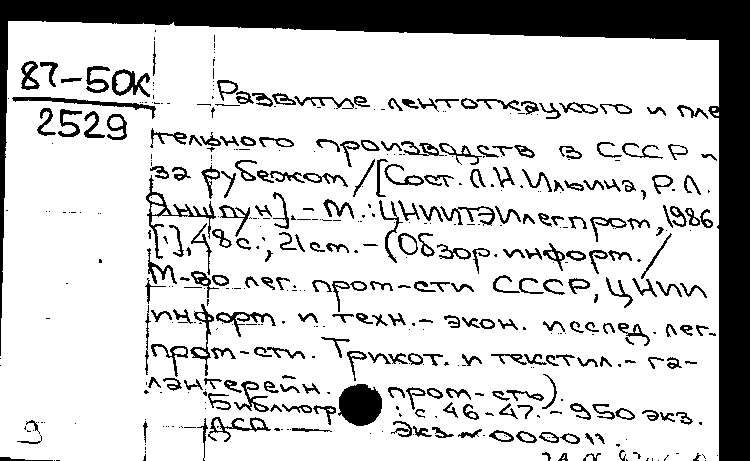 87-50К
2529
Развитие лентоткацкого и пле
тельного производств в СССР и
за рубежом / [Сост. Л.Н. Ильина, Р.Л.
Яншпун]. - М. : ЦНИИТЭИлегпром, 1986.
[1], 48 с. ; 21 см. - (Обзор. информ. /
М-во лег. пром-сти СССР, ЦНИИ
информ. и техн.-экон. исслед. лег.
пром-сти. Трикот. и текстил.-га-
лантерейн. пром-сть).
Библиогр. : с. 46-47. - 950 экз.
ДСП. Экз. № 000011.
9